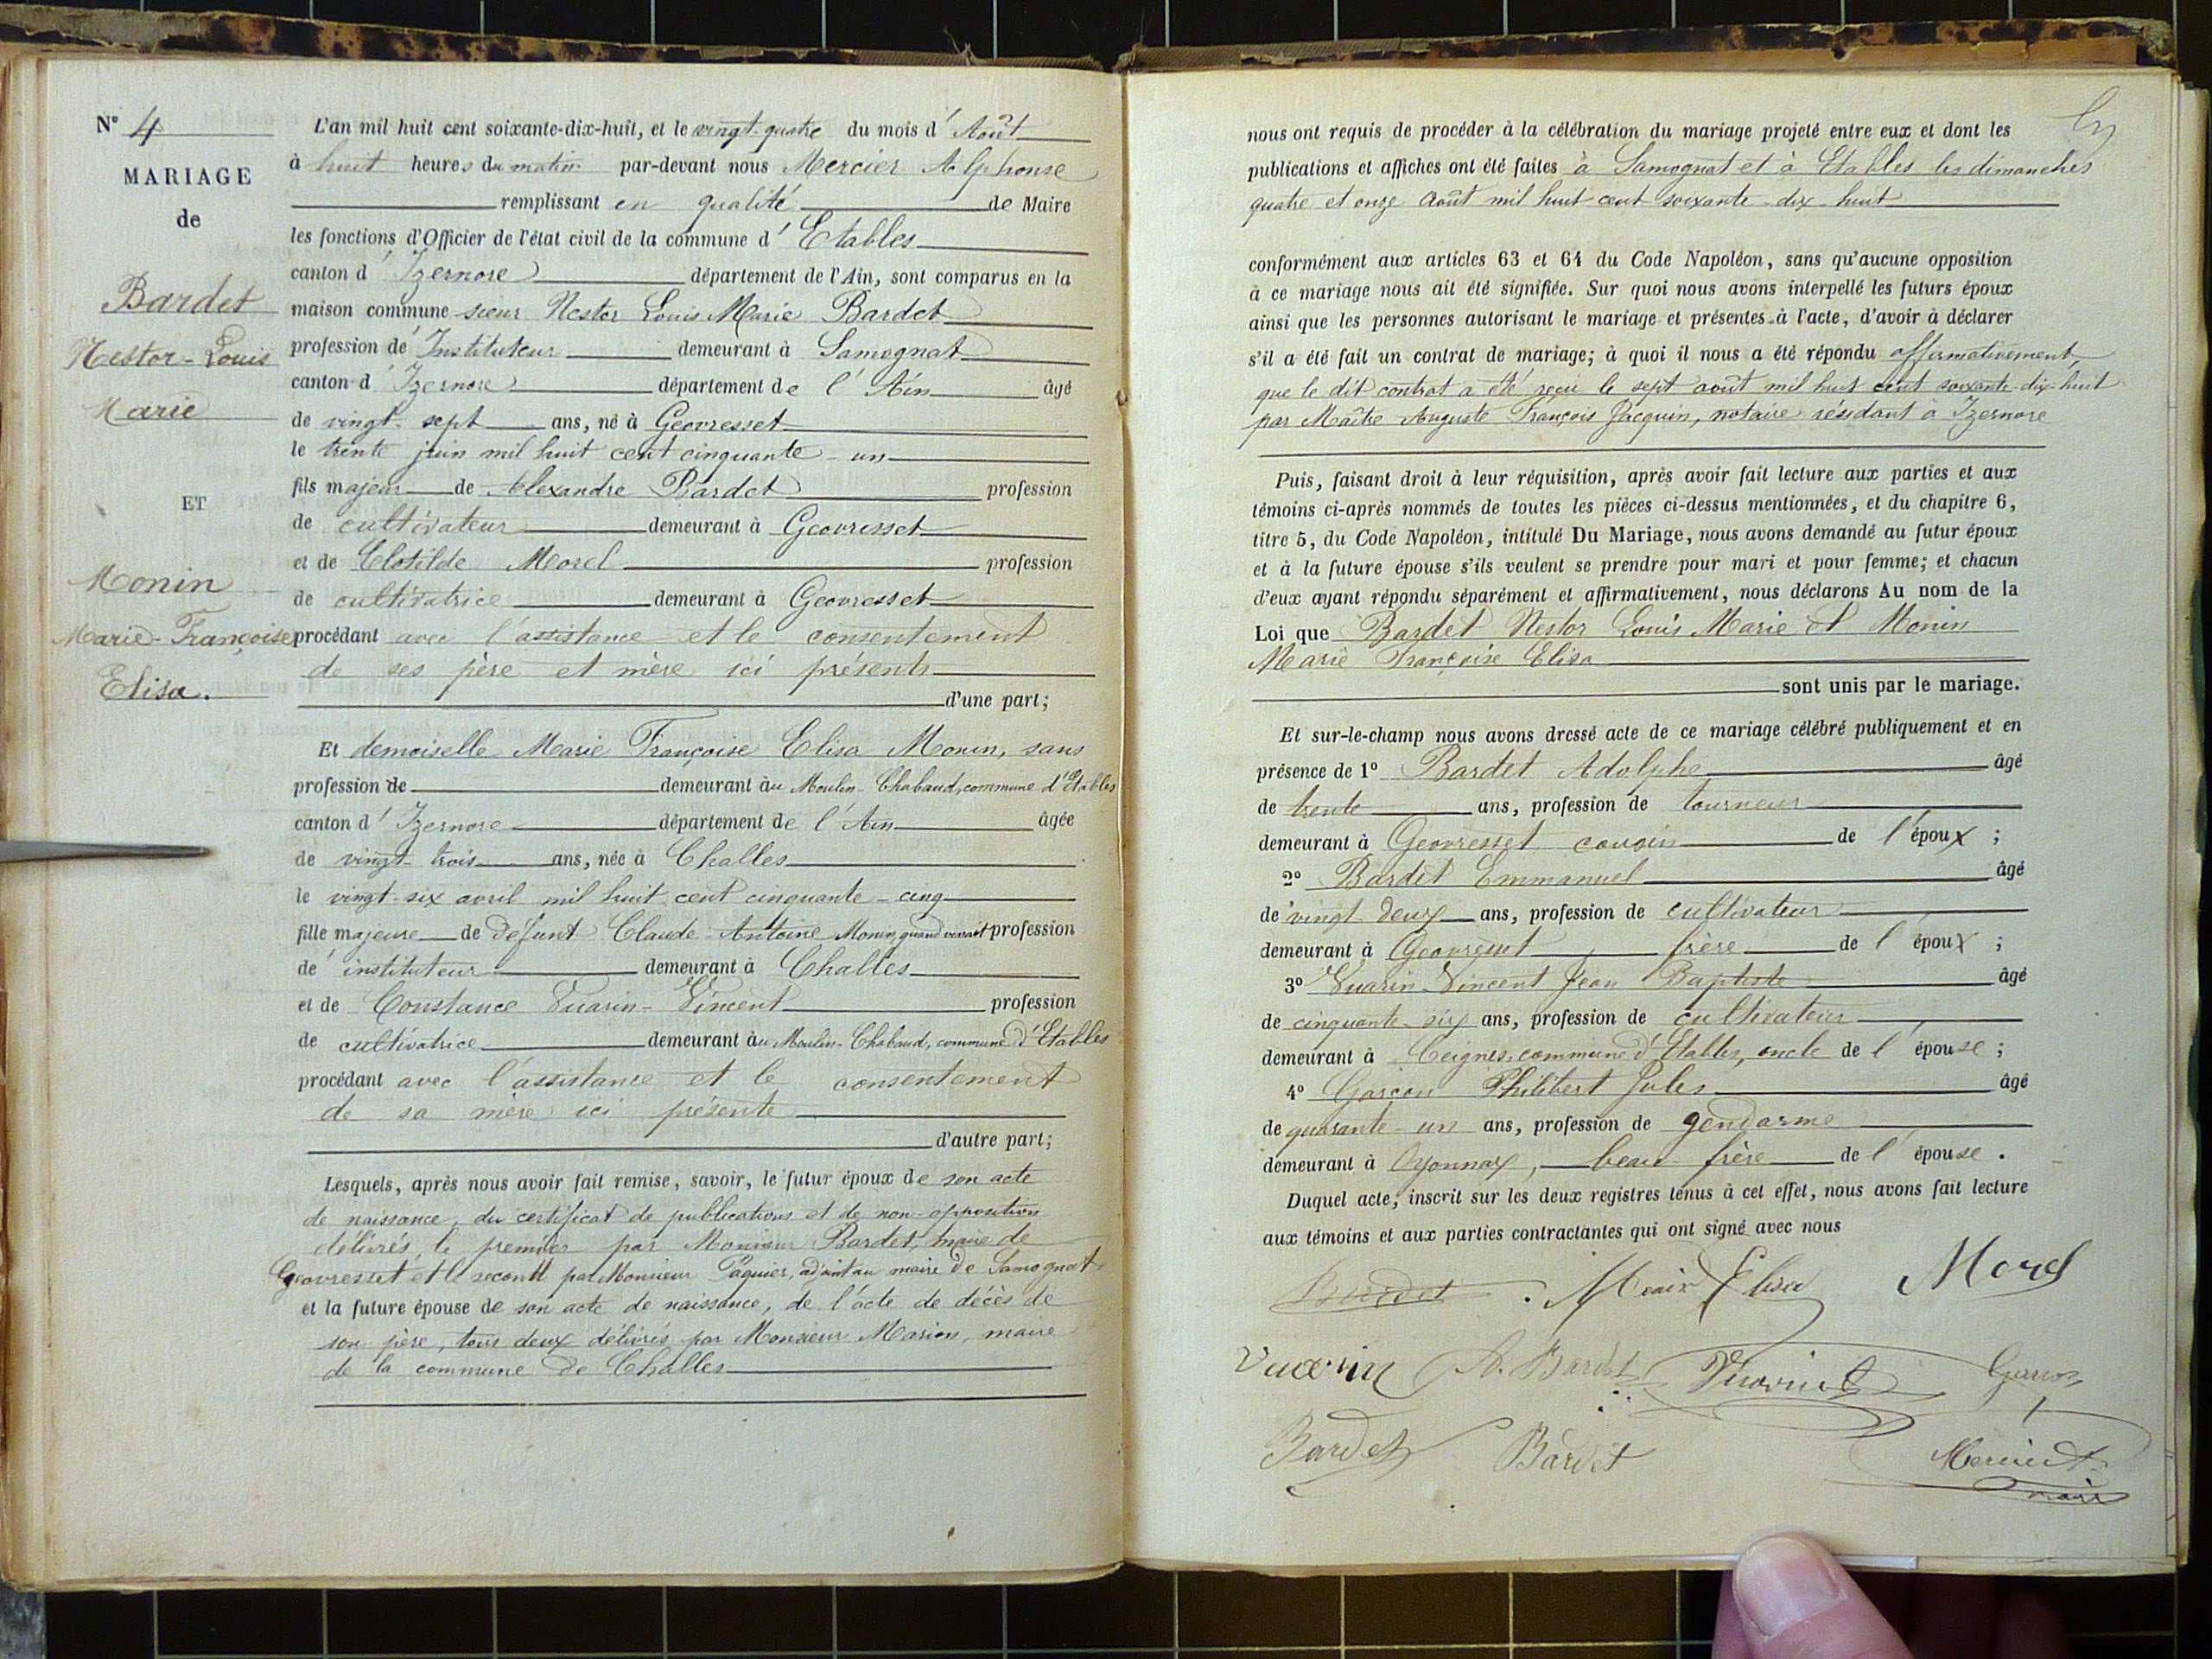 N° 4
MARIAGE
de
Bardet
Nestor-Louis
Marie
ET
Monin
Marie-Françoise
Elisa.
L'an mil huit cent soixante-dix-huit, et le vingt-quatre du mois d'Août
à huit heures du matin par-devant nous Mercier Alphonse
remplissant en qualité de Maire
les fonctions d'Officier de l'état civil de la commune d'Etables
canton d'Izernore département de l'Ain, sont comparus en la
maison commune sieur Nestor Louis Marie Bardet
profession de Instituteur demeurant à Samognat
canton d'Izernore département de l'Ain âgé
de vingt-sept ans, né à Geovresset
le trente juin mil huit cent cinquante-un
fils majeur de Alexandre Bardet profession
de cultivateur demeurant à Geovresset
et de Clotilde Morel profession
de cultivatrice demeurant à Geovresset
procédant avec l'assistance et le consentement
de ses père et mère ici présents
d'une part;
Et demoiselle Marie Françoise Elisa Monin, sans
profession de demeurant au Moulin-Chabaud, commune d'Etables
canton d'Izernore département de l'Ain âgée
de vingt-trois ans, née à Challes
le vingt-six avril mil huit cent cinquante-cinq
fille majeure de défunt Claude-Antoine Monin, quand vivait profession
de instituteur demeurant à Challes
et de Constance Vuarin-Vincent profession
de cultivatrice demeurant au Moulin-Chabaud, commune d'Etables
procédant avec l'assistance et le consentement
de sa mère ici présente
d'autre part;
Lesquels, après nous avoir fait remise, savoir, le futur époux de son acte
de naissance, du certificat de publications et de non-opposition
délivrés, le premier par Monsieur Bardet, maire de
Geovresset et le second par Monsieur Paquier, adjoint au maire de Samognat
et la future épouse de son acte de naissance, de l'acte de décès de
son père, tous deux délivrés par Monsieur Marion, maire
de la commune de Challes
nous ont requis de procéder à la célébration du mariage projeté entre eux et dont les
publications et affiches ont été faites à Samognat et à Etables les dimanches
quatre et onze août mil huit cent soixante-dix-huit
conformément aux articles 63 et 64 du Code Napoléon, sans qu'aucune opposition
à ce mariage nous ait été signifiée. Sur quoi nous avons interpellé les futurs époux
ainsi que les personnes autorisant le mariage et présentes à l'acte, d'avoir à déclarer
s'il a été fait un contrat de mariage; à quoi il nous a été répondu affirmativement,
que le dit contrat a été reçu le sept août mil huit cent soixante-dix-huit
par Maître Auguste François Jacquin, notaire résidant à Izernore
Puis, faisant droit à leur réquisition, après avoir fait lecture aux parties et aux
témoins ci-après nommés de toutes les pièces ci-dessus mentionnées, et du chapitre 6,
titre 5, du Code Napoléon, intitulé Du Mariage, nous avons demandé au futur époux
et à la future épouse s'ils veulent se prendre pour mari et pour femme; et chacun
d'eux ayant répondu séparément et affirmativement, nous déclarons Au nom de la
Loi que Bardet Nestor Louis Marie et Monin
Marie Françoise Elisa
sont unis par le mariage.
Et sur-le-champ nous avons dressé acte de ce mariage célébré publiquement et en
présence de 1° Bardet Adolphe âgé
de trente ans, profession de tourneur
demeurant à Geovresset cousin de l'époux ;
2° Bardet Emmanuel âgé
de vingt-deux ans, profession de cultivateur
demeurant à Geovresset, frère de l'époux ;
3° Vuarin-Vincent Jean Baptiste âgé
de cinquante-six ans, profession de cultivateur
demeurant à Ceignes, commune d'Etables, oncle de l'épouse ;
4° Garçon Philibert Jules âgé
de quarante-un ans, profession de gendarme
demeurant à Oyonnax, beau-frère de l'épouse.
Duquel acte, inscrit sur les deux registres tenus à cet effet, nous avons fait lecture
aux témoins et aux parties contractantes qui ont signé avec nous
Bardet Elisa Morel
Vuarin A. Bardet
Bardet Bardet
maire